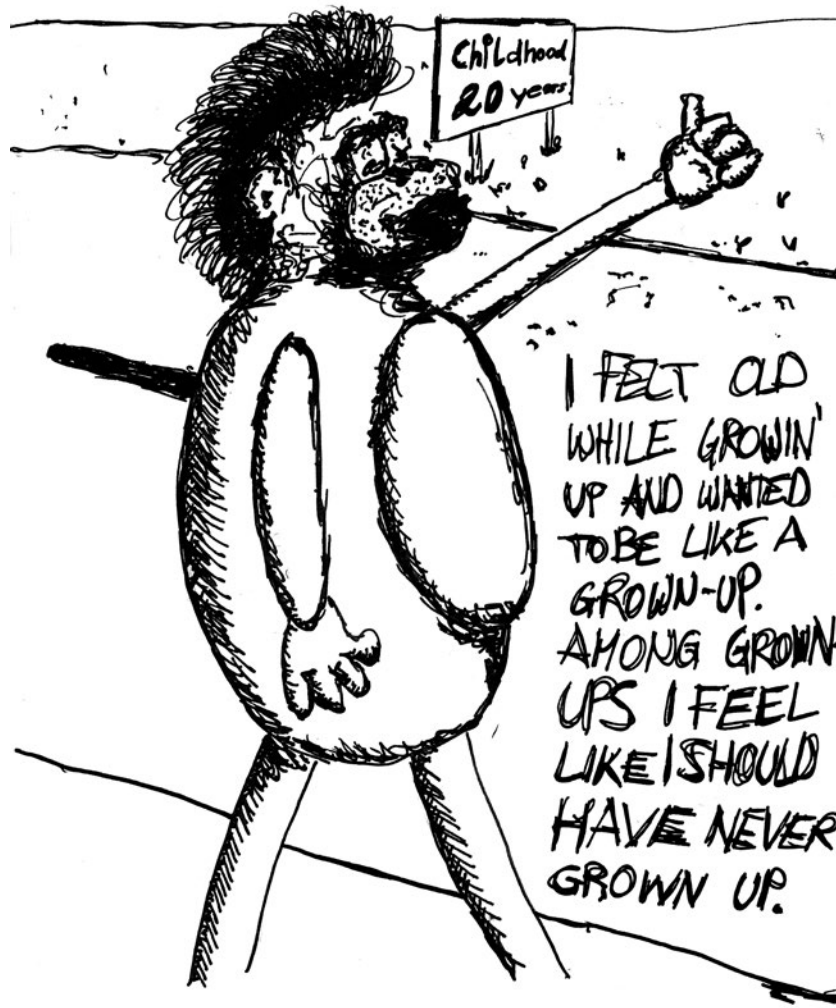 Childhood
20 years
I FELT OLD
WHILE GROWIN'
UP AND WANTED
TO BE LIKE A
GROWN-UP.
AMONG GROWN-
UPS I FEEL
LIKE I SHOULD
HAVE NEVER
GROWN UP.